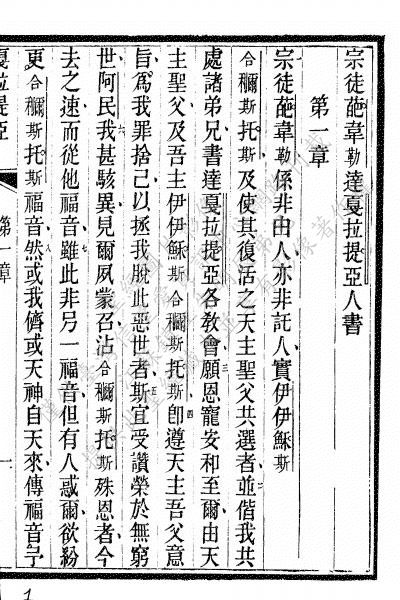 宗徒葩韋勒達戛拉提亞人書
第一章
宗徒葩韋勒係非由人亦非託人實伊伊穌斯
合穪斯托斯及使其復活之天主聖父共選者並偕我共
處諸弟兄書達戛拉提亞各教會願恩寵安和至爾由天
主聖父及吾主伊伊穌斯合穪斯托斯卽遵天主吾父意
旨爲我罪捨己以拯我脫此惡世者斯宜受讚榮於無窮
世阿民我甚駭異見爾夙蒙召沾合穪斯托斯殊恩者今
去之速而從他福音雖此非另一福音但有人惑爾欲紛
更合穪斯托斯福音然或我儕或天神自天來傳福音予
戛拉提亞 第一章 一
1